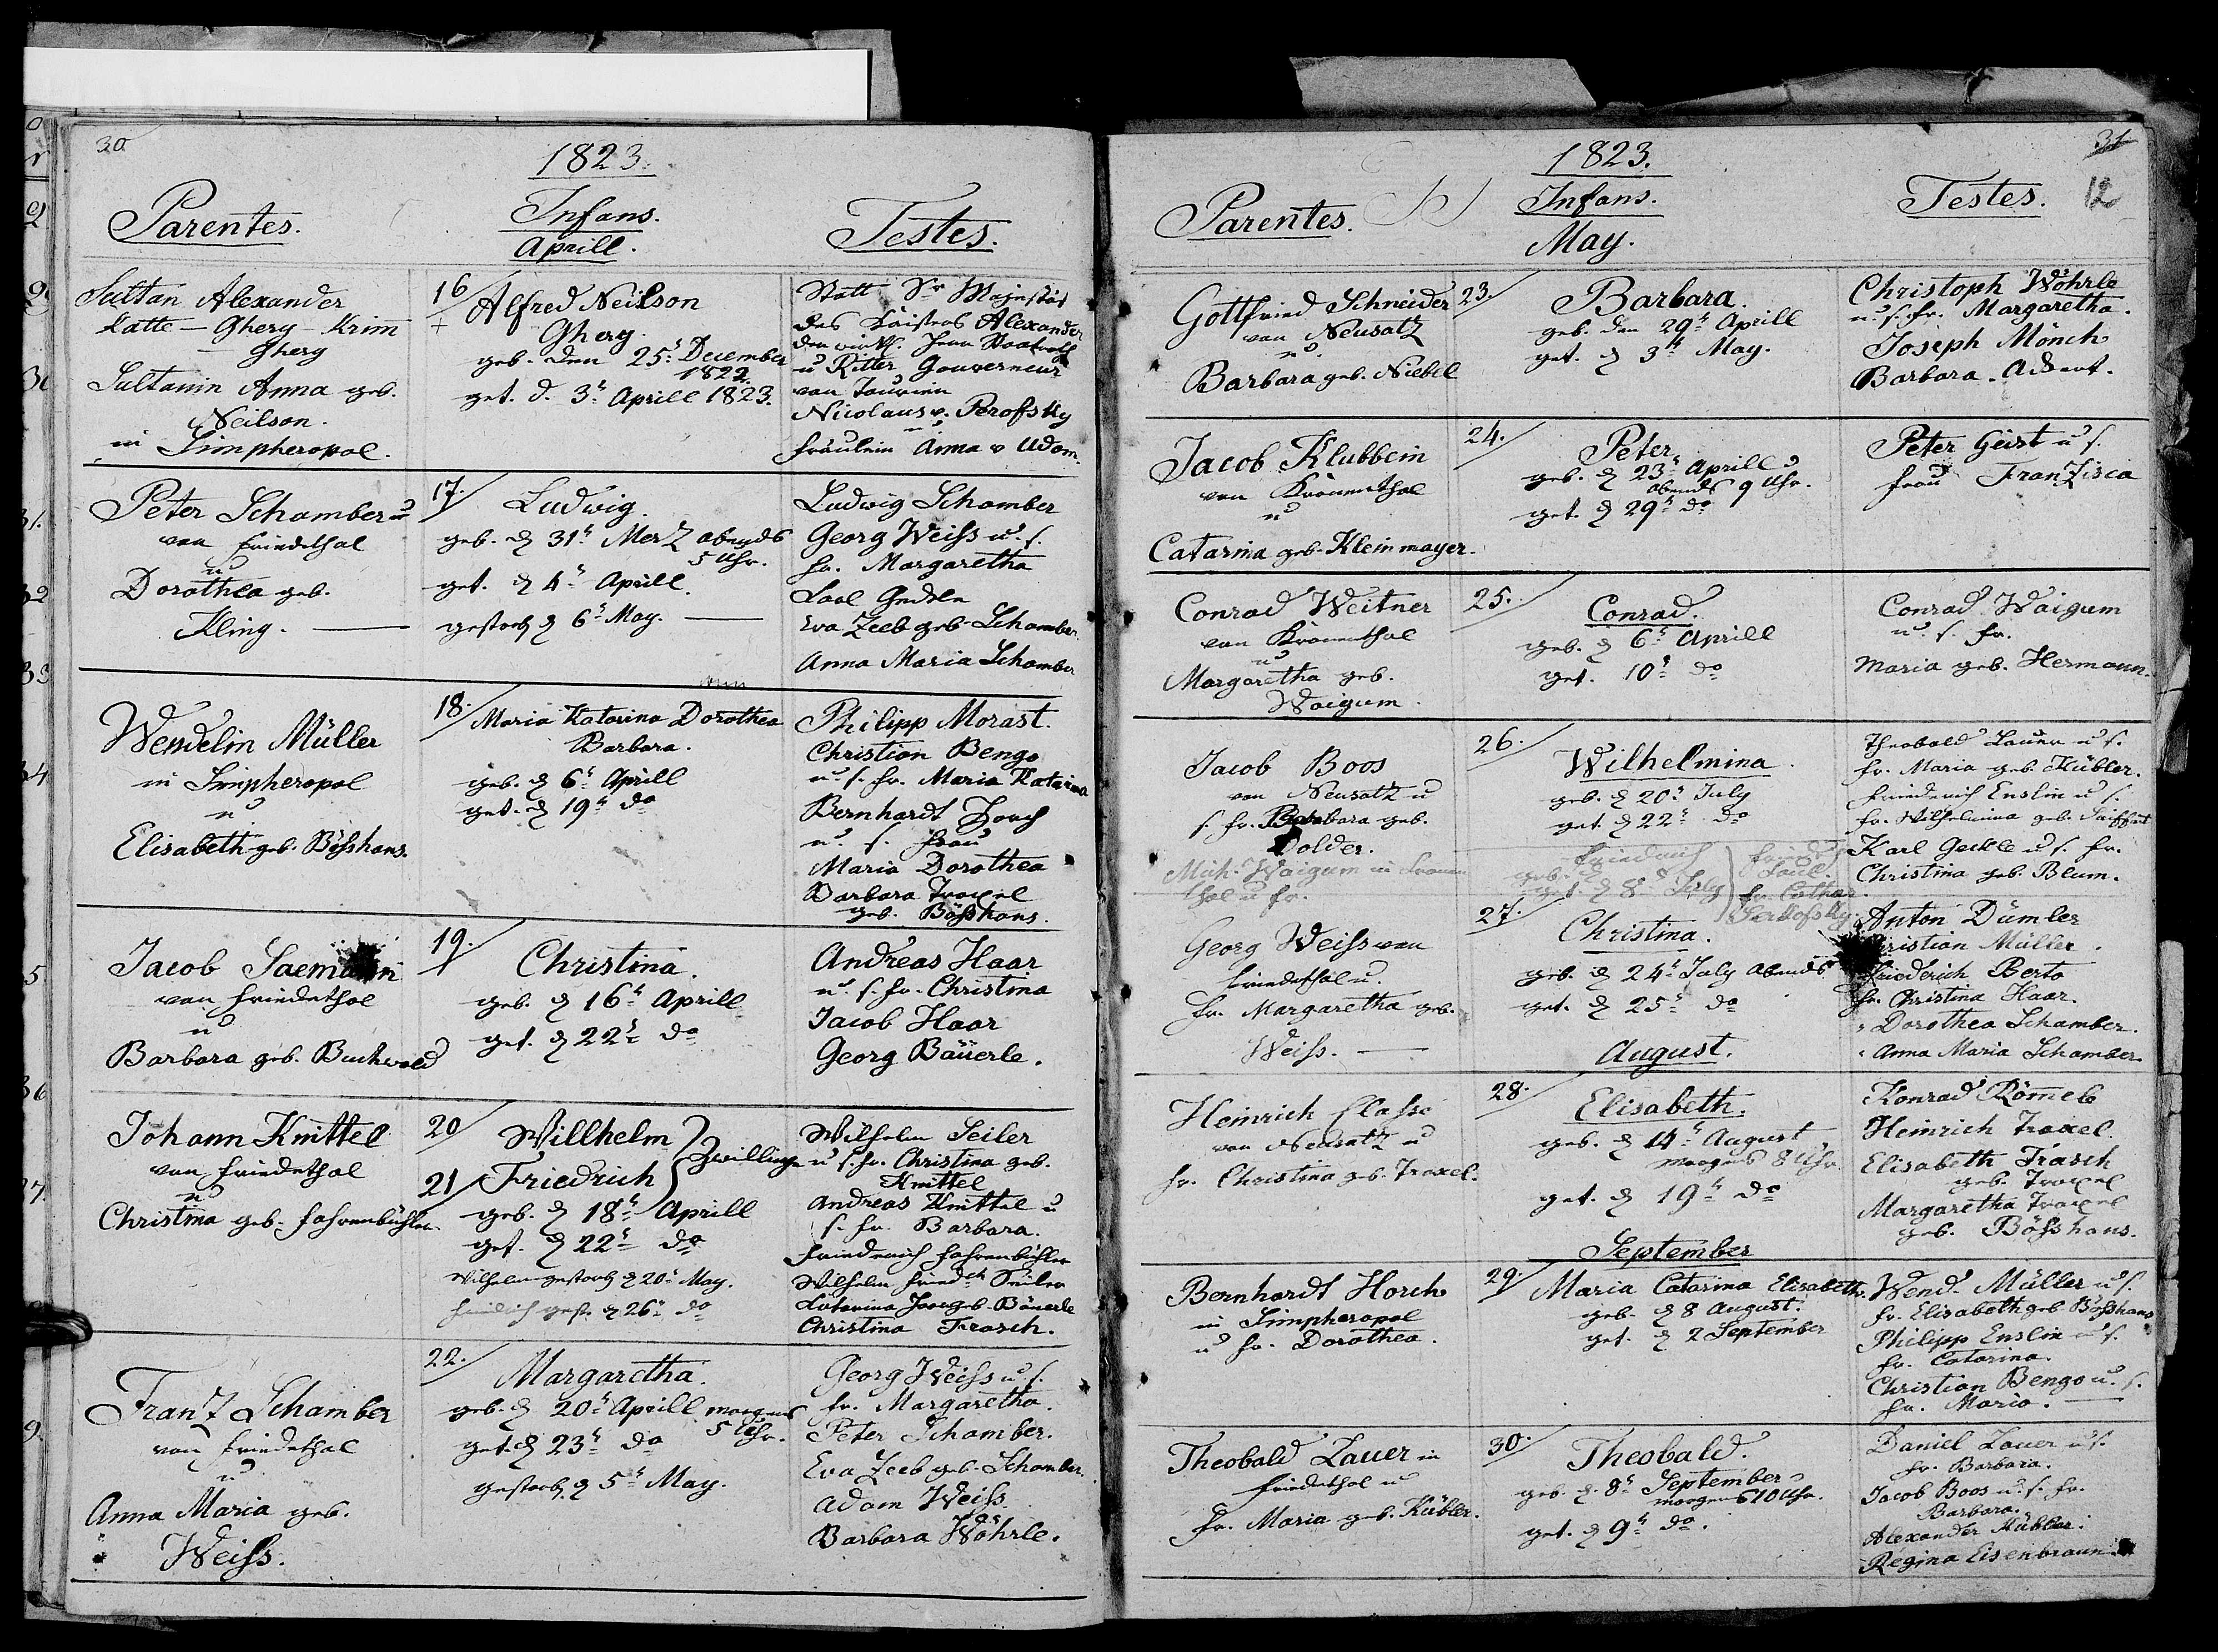 30
1823.
Parentes.
Infans.
Testes.
Aprill.
Sultan Alexander
Katte – Ghery – Krim
– Ghery
Sultanin Anna geb.
Neilson.
in Simpheropol.
16
+
Alfred Neilson
Ghery.
geb. den 25t December
1822.
get. d. 3t Aprill 1823.
Statt Sr Majestät
des Kaisers Alexander
der wirkl. Herr Staatsrath
u Ritter Gouverneur
von Taurien
Nicolaus v. Perofsky
u.
Fräulein Anna v Udom.
Peter Schamber u
von Friedethal
u
Dorothea geb.
Kling. —
17.
Ludwig.
geb. d 31t Merz abends
5 Uhr.
get. d 4t Aprill.
gestorb d 6t May. —
Ludwig Schamber
Georg Weiss u. s.
fr. Margaretha
Eva Zeeb geb. Schamber.
Anna Maria Schamber
Wendelin Müller
in Simpheropol
u.
Elisabeth geb. Bösshans.
18.
Maria Katarina Dorothea
Barbara.
geb. d 6t Aprill
get. d 19t do
Philipp Morast.
Christian Bengo
u. s. fr. Maria Katarina
Bernhardt Horch
u. s. frau
Maria Dorothea
Barbara Traxel
geb. Bösshans.
Jacob Saemann
von Friedethal
u
Barbara geb. Buchwald
19.
Christina.
geb. d 16t Aprill
get. d 22t do
Andreas Haar
u. s. fr. Christina
Jacob Haar
Georg Bäuerle.
Johann Knittel
von Friedethal
u
Christina geb. Fahrenbühler.
20
Willhelm
21
Friedrich
Zwillinge
geb. d 18t Aprill
get. d 22t do
Wilhelm gestorb d 20t May.
Friedrich gest. d 26t do
Wilhelm Seiler
u s. fr. Christina geb.
Knittel
Andreas Knittel u
s. fr. Barbara.
Friederich Fahrenbühler
Wilhelm Friedch Seiler
Catarina Haar geb. Bäuerle
Christina Frasch.
Franz Schamber
von Friedethal
u
Anna Maria geb.
Weiss.
22.
Margaretha.
geb. d 20t Aprill morgens
5 Uhr.
get. d 23t do
gestorb. d 5t May.
Georg Weiss u s.
fr. Margaretha.
Peter Schamber.
Eva Zeeb geb. Schamber.
Adam Weiss.
Barbara Wöhrle.
31
12
1823.
Parentes.
Infans.
Testes.
May.
Gottfried Schneider
von Neusatz
u.
Barbara geb. Niebel
23.
Barbara.
geb. den 29t Aprill
get. d 3t May.
Christoph Wöhrle
u. s. fr. Margaretha.
Joseph Mönch
Barbara Advent.
Jacob Klubbein
von Kronenthal
u
Catarina geb. Kleinmayer.
24.
Peter
geb. d 23t Aprill
abends 9 Uhr.
get. d 29t do
Peter Geist u s.
frau Franzisca
Conrad Weitner
von Kronenthal
u
Margaretha geb.
Waigum.
25.
Conrad.
geb. d 6t Aprill
get. 10t do
Conrad Waigum
u. s. fr.
Maria geb. Hermann.
Jacob Boos
von Neusatz u
s. fr. Barbara geb.
Dolder.
26.
Wilhelmina.
geb. d 20t July
get. d 22t do
Theobald Lauer u s.
fr. Maria geb. Kübler.
Friederich Enslin u s.
fr. Wilhelmina geb. Seiffert
Karl Geckle u s. fr.
Christina geb. Blum.
Mich. Waigum in Kronen
thal u fr.
Friedrich
geb. d
get. d 8t July
Friedr
Paul.
fr. Cathar
Georg Weiss von
Friedethal u.
fr. Margaretha geb.
Weiss. —
27.
Christina.
geb. d 24t July Abends
get. d 25t do
Anton Dümler
Christian Müller.
Friederich Berto
fr. Christina Haar.
" Dorothea Schamber.
" Anna Maria Schamber
August.
Heinrich Classe
von Neusatz u
fr. Christina geb. Traxel.
28.
Elisabeth.
geb. d 14t August
morgens 8 Uhr.
get. d 19t do
Konrad Römele
Heinrich Traxel.
Elisabeth Frasch
geb. Traxel
Margaretha Traxel
geb. Bösshans.
September
Bernhardt Horch
in Simpheropol
u fr. Dorothea.
29.
Maria Catarina Elisabeth.
geb. d 8 August.
get. d 2 September
Wend. Müller u s.
fr. Elisabeth geb. Bösshans
Philipp Enslin u s.
fr. Catarina.
Christian Bengo u. s.
fr. Maria. —
Theobald Lauer in
Friedethal u
fr. Maria geb. Kübler.
30.
Theobald.
geb. d. 8t September
morgens 10 Uhr.
get. d 9t do.
Daniel Lauer u s.
fr. Barbara.
Jacob Boos u. s. fr.
Barbara.
Alexander Kübler.
Regina Eisenbraun.